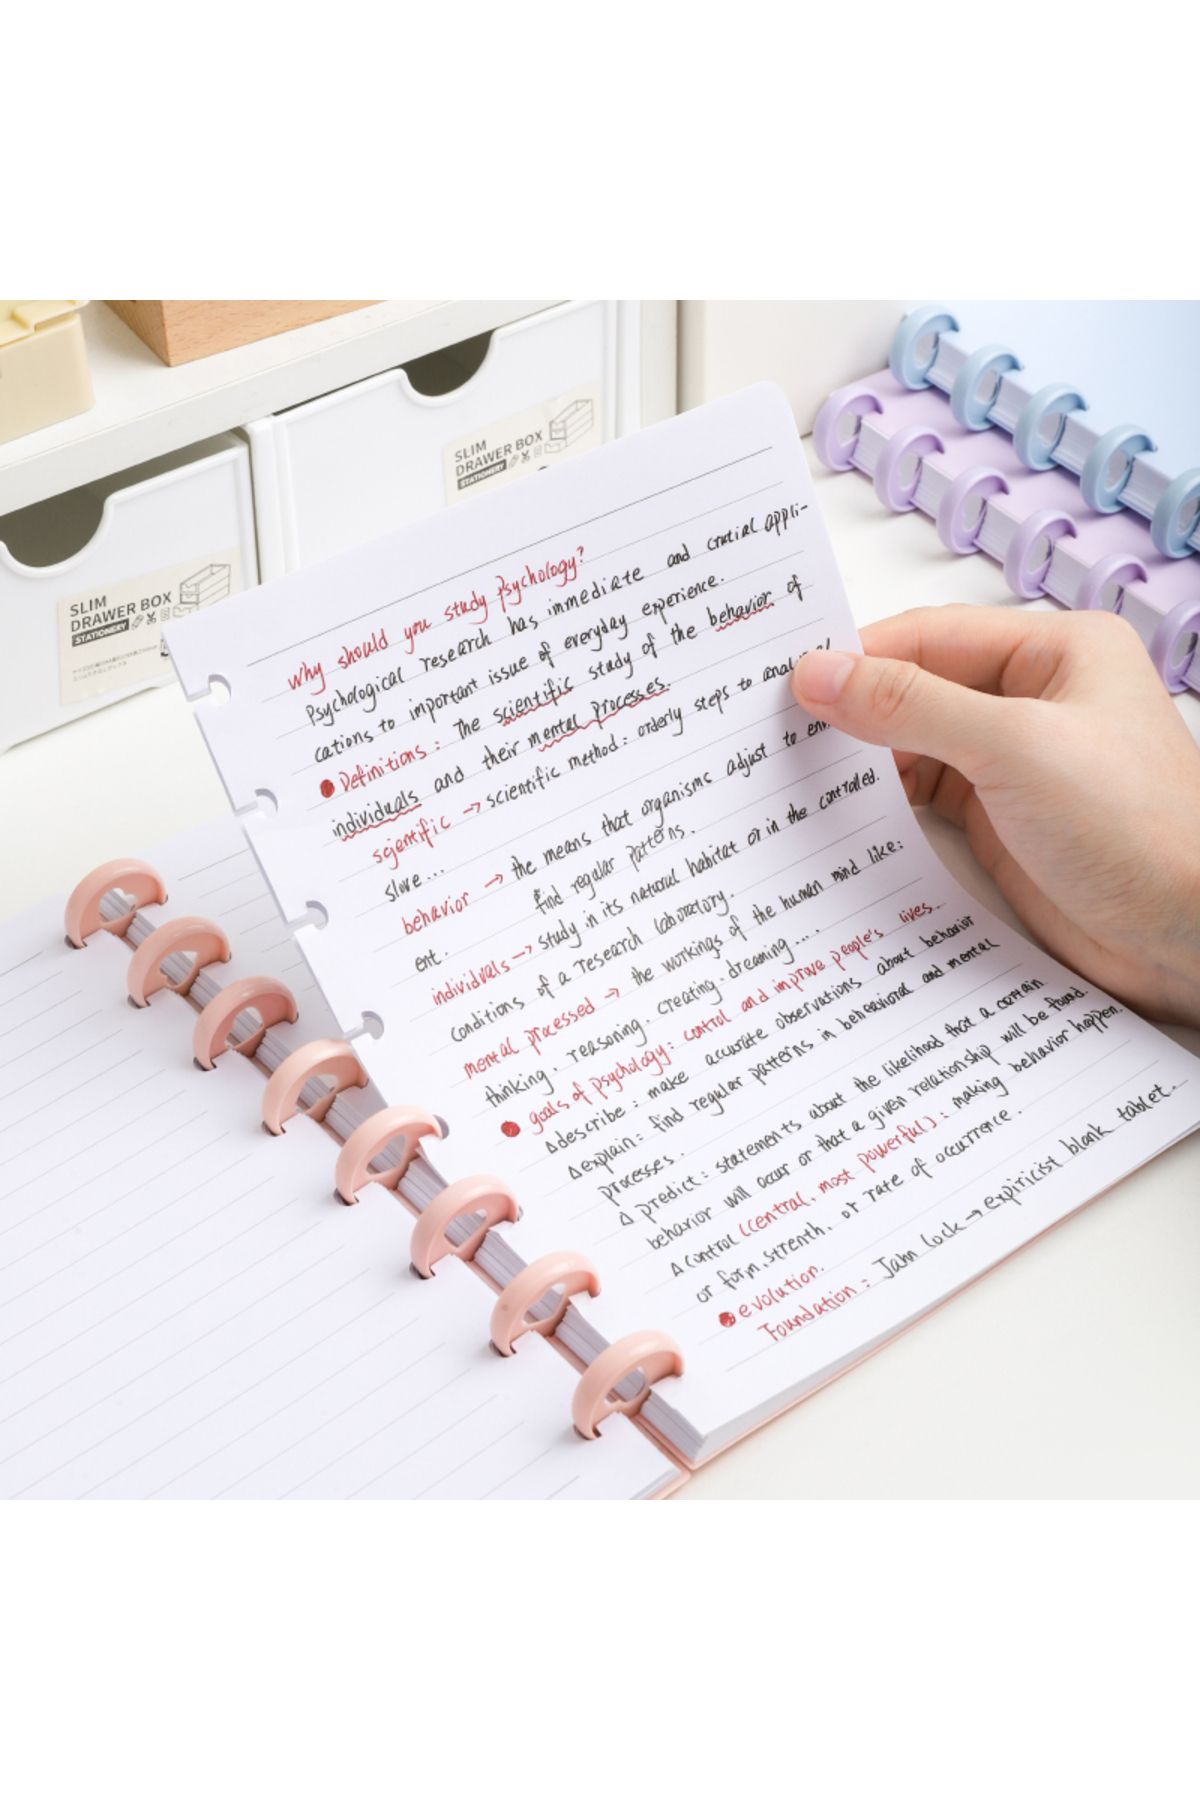 SLIM
DRAWER BOX
STATIONERY
SLIM
DRAWER BOX
STATIONERY
why should you study psychology?
Psychological research has immediate and crutial appli-
cations to important issue of everyday experience.
Definitions: The scientific study of the behavior of
individuals and their mental processes.
scientific → scientific method: orderly steps to
slove...
behavior → the means that organisms adjust to
ent. find regular patterns.
individuals → study in its natural habitat or in the controlled
conditions of a research laboratory.
mental processed → the workings of the human mind like:
thinking. reasoning. creating. dreaming....
goals of psychology: control and improve people's lives...
△describe: make accurate observations about behavior
△explain: find regular patterns in behavioral and mental
processes.
△ predict: statements about the likelihood that a certain
behavior will occur or that a given relationship will be found.
△ control (central, most powerful): making behavior happen.
or form, strenth, or rate of occurrence.
evolution.
Foundation: Jahn Lock → expiricist blank tablet.